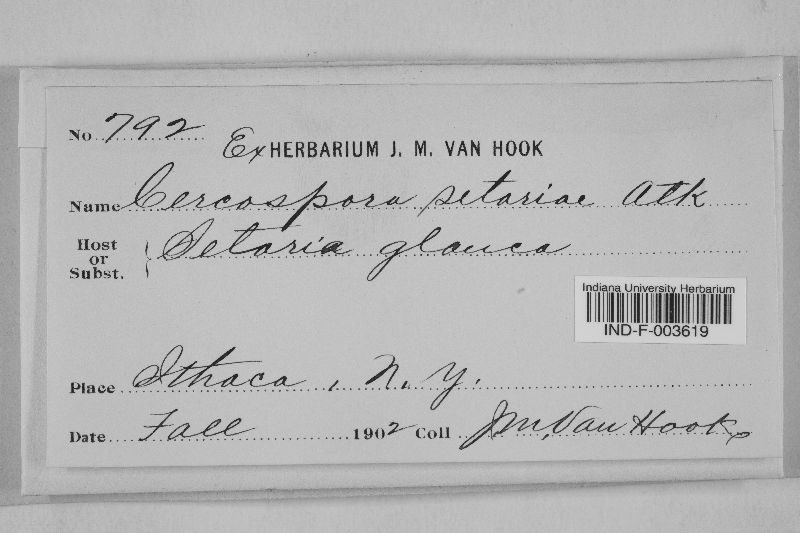 No 792
Ex HERBARIUM J. M. VAN HOOK
Name Cercospora setariae Atk
Host or Subst. { Setaria glauca
Indiana University Herbarium
IND-F-003619
Place Ithaca, N. Y.
Date Fall 1902 Coll J.M. Van Hook